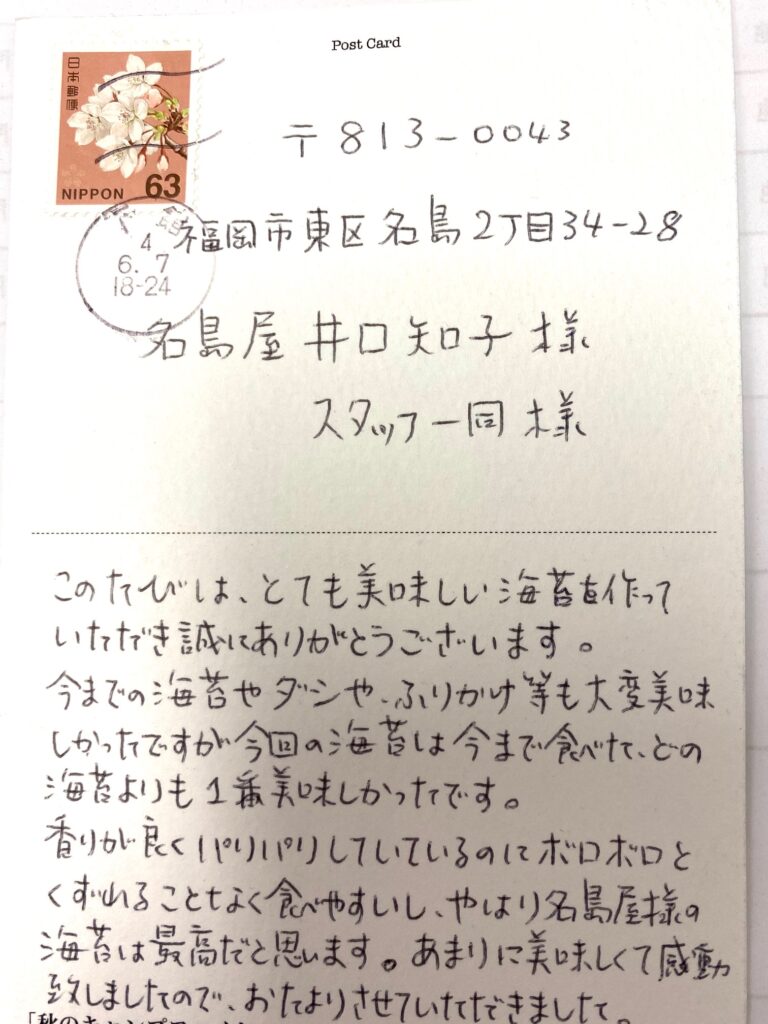 Post Card
日本郵便
NIPPON 63
4
6. 7
18-24
〒813-0043
福岡市東区名島2丁目34-28
名島屋 井口知子 様
スタッフ一同 様
このたびは、とても美味しい海苔を作って
いただき誠にありがとうございます。
今までの海苔やダシや、ふりかけ等も大変美味
しかったですが今回の海苔は今まで食べた、どの
海苔よりも1番美味しかったです。
香りが良くパリパリしていているのにボロボロと
くずれることなく食べやすいし、やはり名島屋様の
海苔は最高だと思います。あまりに美味しくて感動
致しましたので、おたよりさせていただきました。